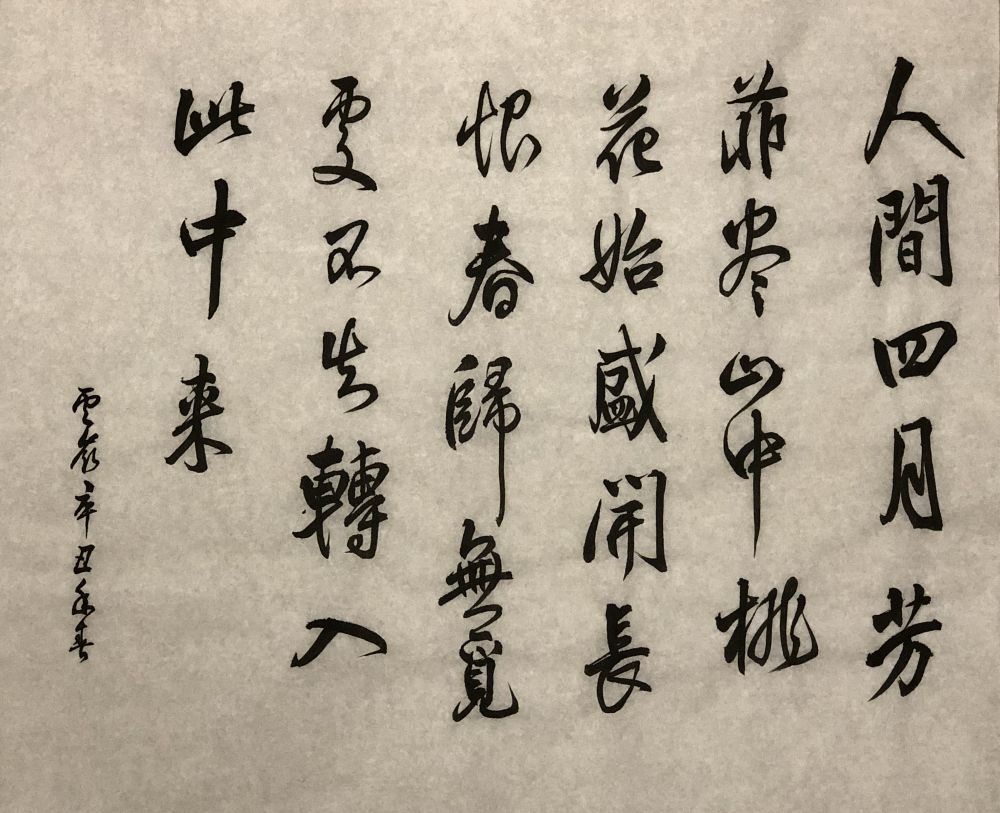 人間四月芳
菲尽山中桃
花始盛開長
恨春歸無覓
處不知轉入
此中来
雲辛丑年春